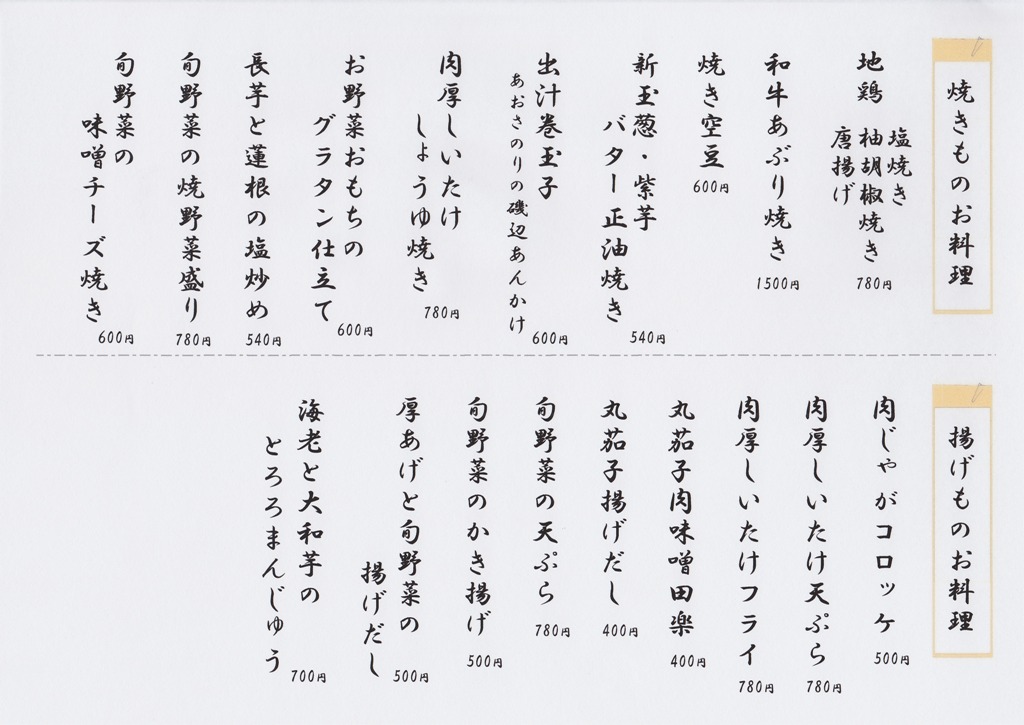 焼きものお料理
地鶏
塩焼き
柚胡椒焼き
唐揚げ
780円
和牛あぶり焼き
1500円
焼き空豆
600円
新玉葱・紫芋
バター正油焼き
540円
出汁巻玉子
あおさのりの磯辺あんかけ
600円
肉厚しいたけ
しょうゆ焼き
780円
お野菜おもちの
グラタン仕立て
600円
長芋と蓮根の塩炒め
540円
旬野菜の焼野菜盛り
780円
旬野菜の
味噌チーズ焼き
600円
揚げものお料理
肉じゃがコロッケ
500円
肉厚しいたけ天ぷら
780円
肉厚しいたけフライ
780円
丸茄子肉味噌田楽
400円
丸茄子揚げだし
400円
旬野菜の天ぷら
780円
旬野菜のかき揚げ
500円
厚あげと旬野菜の
揚げだし
500円
海老と大和芋の
とろろまんじゅう
700円